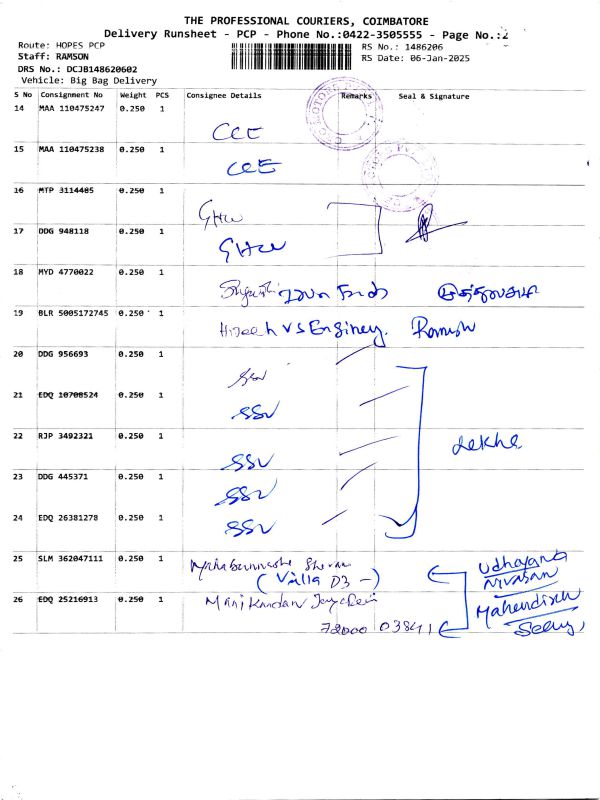 THE PROFESSIONAL COURIERS, COIMBATORE
Delivery Runsheet - PCP - Phone No.:0422-3505555 - Page No.:2
Route: HOPES PCP
RS No.: 1486206
Staff: RAMSON
RS Date: 06-Jan-2025
DRS No.: DCJB148620602
Vehicle: Big Bag Delivery
S No Consignment No Weight PCS Consignee Details Remarks Seal & Signature
14 MAA 110475247 0.250 1
CCE
15 MAA 110475238 0.250 1
CCE
16 MTP 3114405 0.250 1
GHCU
17 DDG 948118 0.250 1
GHCU
18 MYD 4770022 0.250 1
19 BLR 5005172745 0.250 1
Hitech VS Enginey. Ramesh
20 DDG 956693 0.250 1
SSV
21 EDQ 10708524 0.250 1
SSV
22 RJP 3492321 0.250 1
SSV
Lekha
23 DDG 445371 0.250 1
SSV
24 EDQ 26381278 0.250 1
SSV
25 SLM 362047111 0.250 1
(Villa D3 -)
Udhayana
Nivasan
26 EDQ 25216913 0.250 1
Manikandan
72000 03841